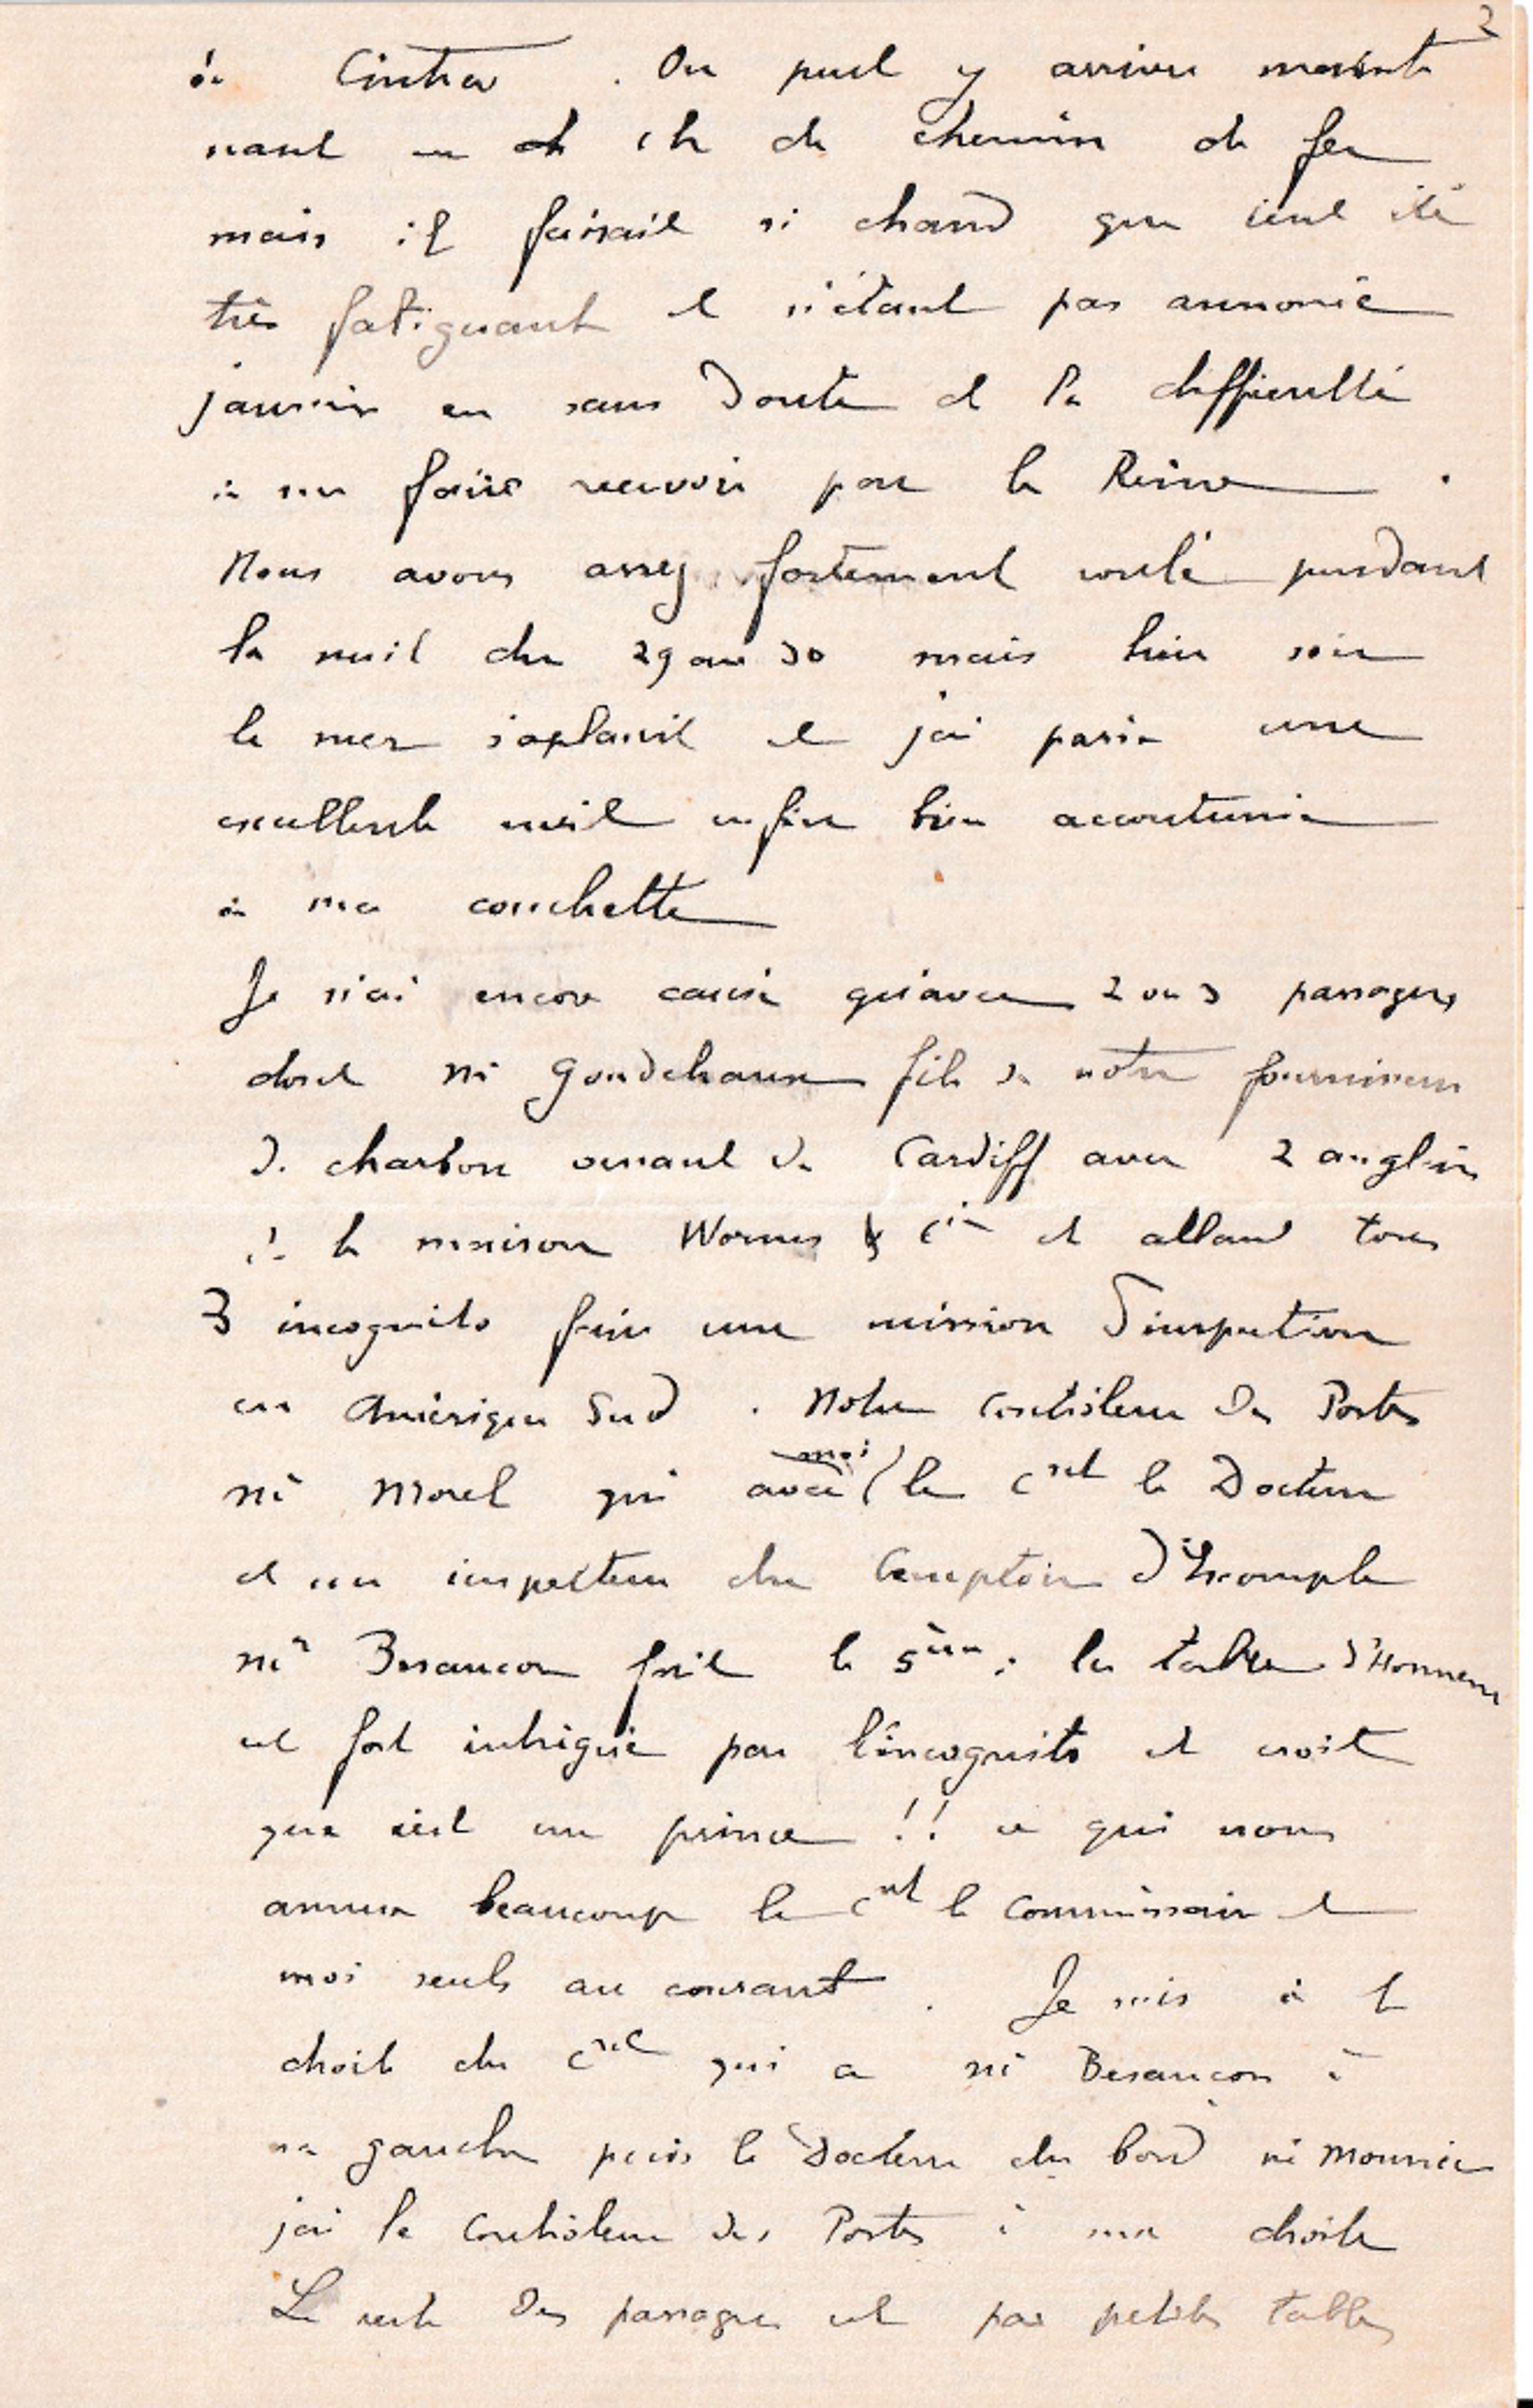 2
à Cintra . On peut y arriver mainte
nant en 1h de chemin de fer
mais il faisait si chaud que c'eut été
très fatiguant et n'étant pas annoncé
j'aurais eu sans doute de la difficulté
à me faire recevoir par la Reine .
Nous avons assez fortement roulé pendant
la nuit du 29 au 30 mais hier soir
la mer s'aplanit et j'ai passé une
excellente nuit enfin bien accoutumé
à ma couchette
Je n'ai encore causé qu'avec 2 ou 3 passagers
dont Mr Goudchaux fils de notre fournisseur
de charbon venant de Cardiff avec 2 anglais
de la maison Worms & Cie et allant tous
3 incognito faire une mission d'inspection
en Amérique Sud . Notre Contrôleur des Postes
Mr Morel qui avec moi (le Cnt le Docteur
et un inspecteur du Comptoir d'Escompte
Mr Besançon fait le 5ème ; la table d'Honneur
est fort intrigué par l'incognito et croit
que c'est un prince !! ce qui nous
amuse beaucoup le Cnt le Commissaire et
moi seuls au courant . Je suis à la
droite du Cnt qui a Mr Besançon à
sa gauche puis le Docteur du bord Mr Mounier
j'ai le Contrôleur des Postes à ma droite
Le reste des passagers est par petites tables